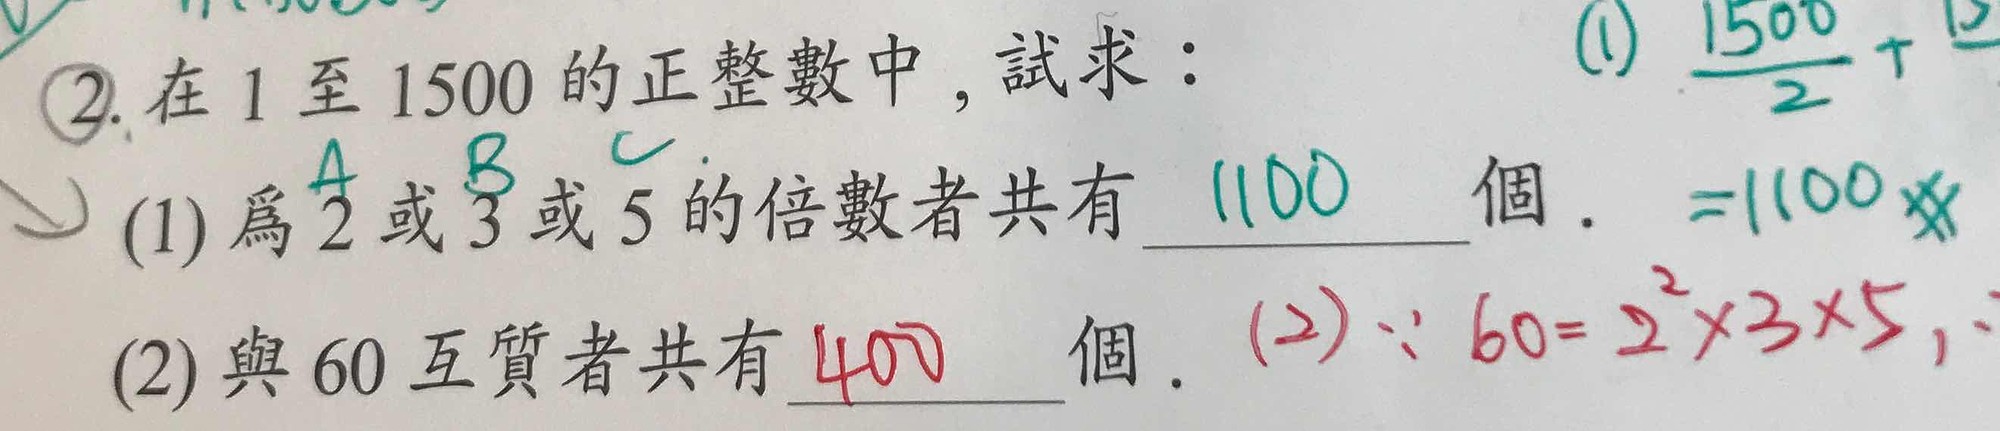 2. 在 1 至 1500 的正整數中，試求：
(1) 1500/2 +
A B C
(1) 爲 2 或 3 或 5 的倍數者共有 1100 個．
=1100
(2) 與 60 互質者共有 400 個．
(2) ∵ 60=2²×3×5,